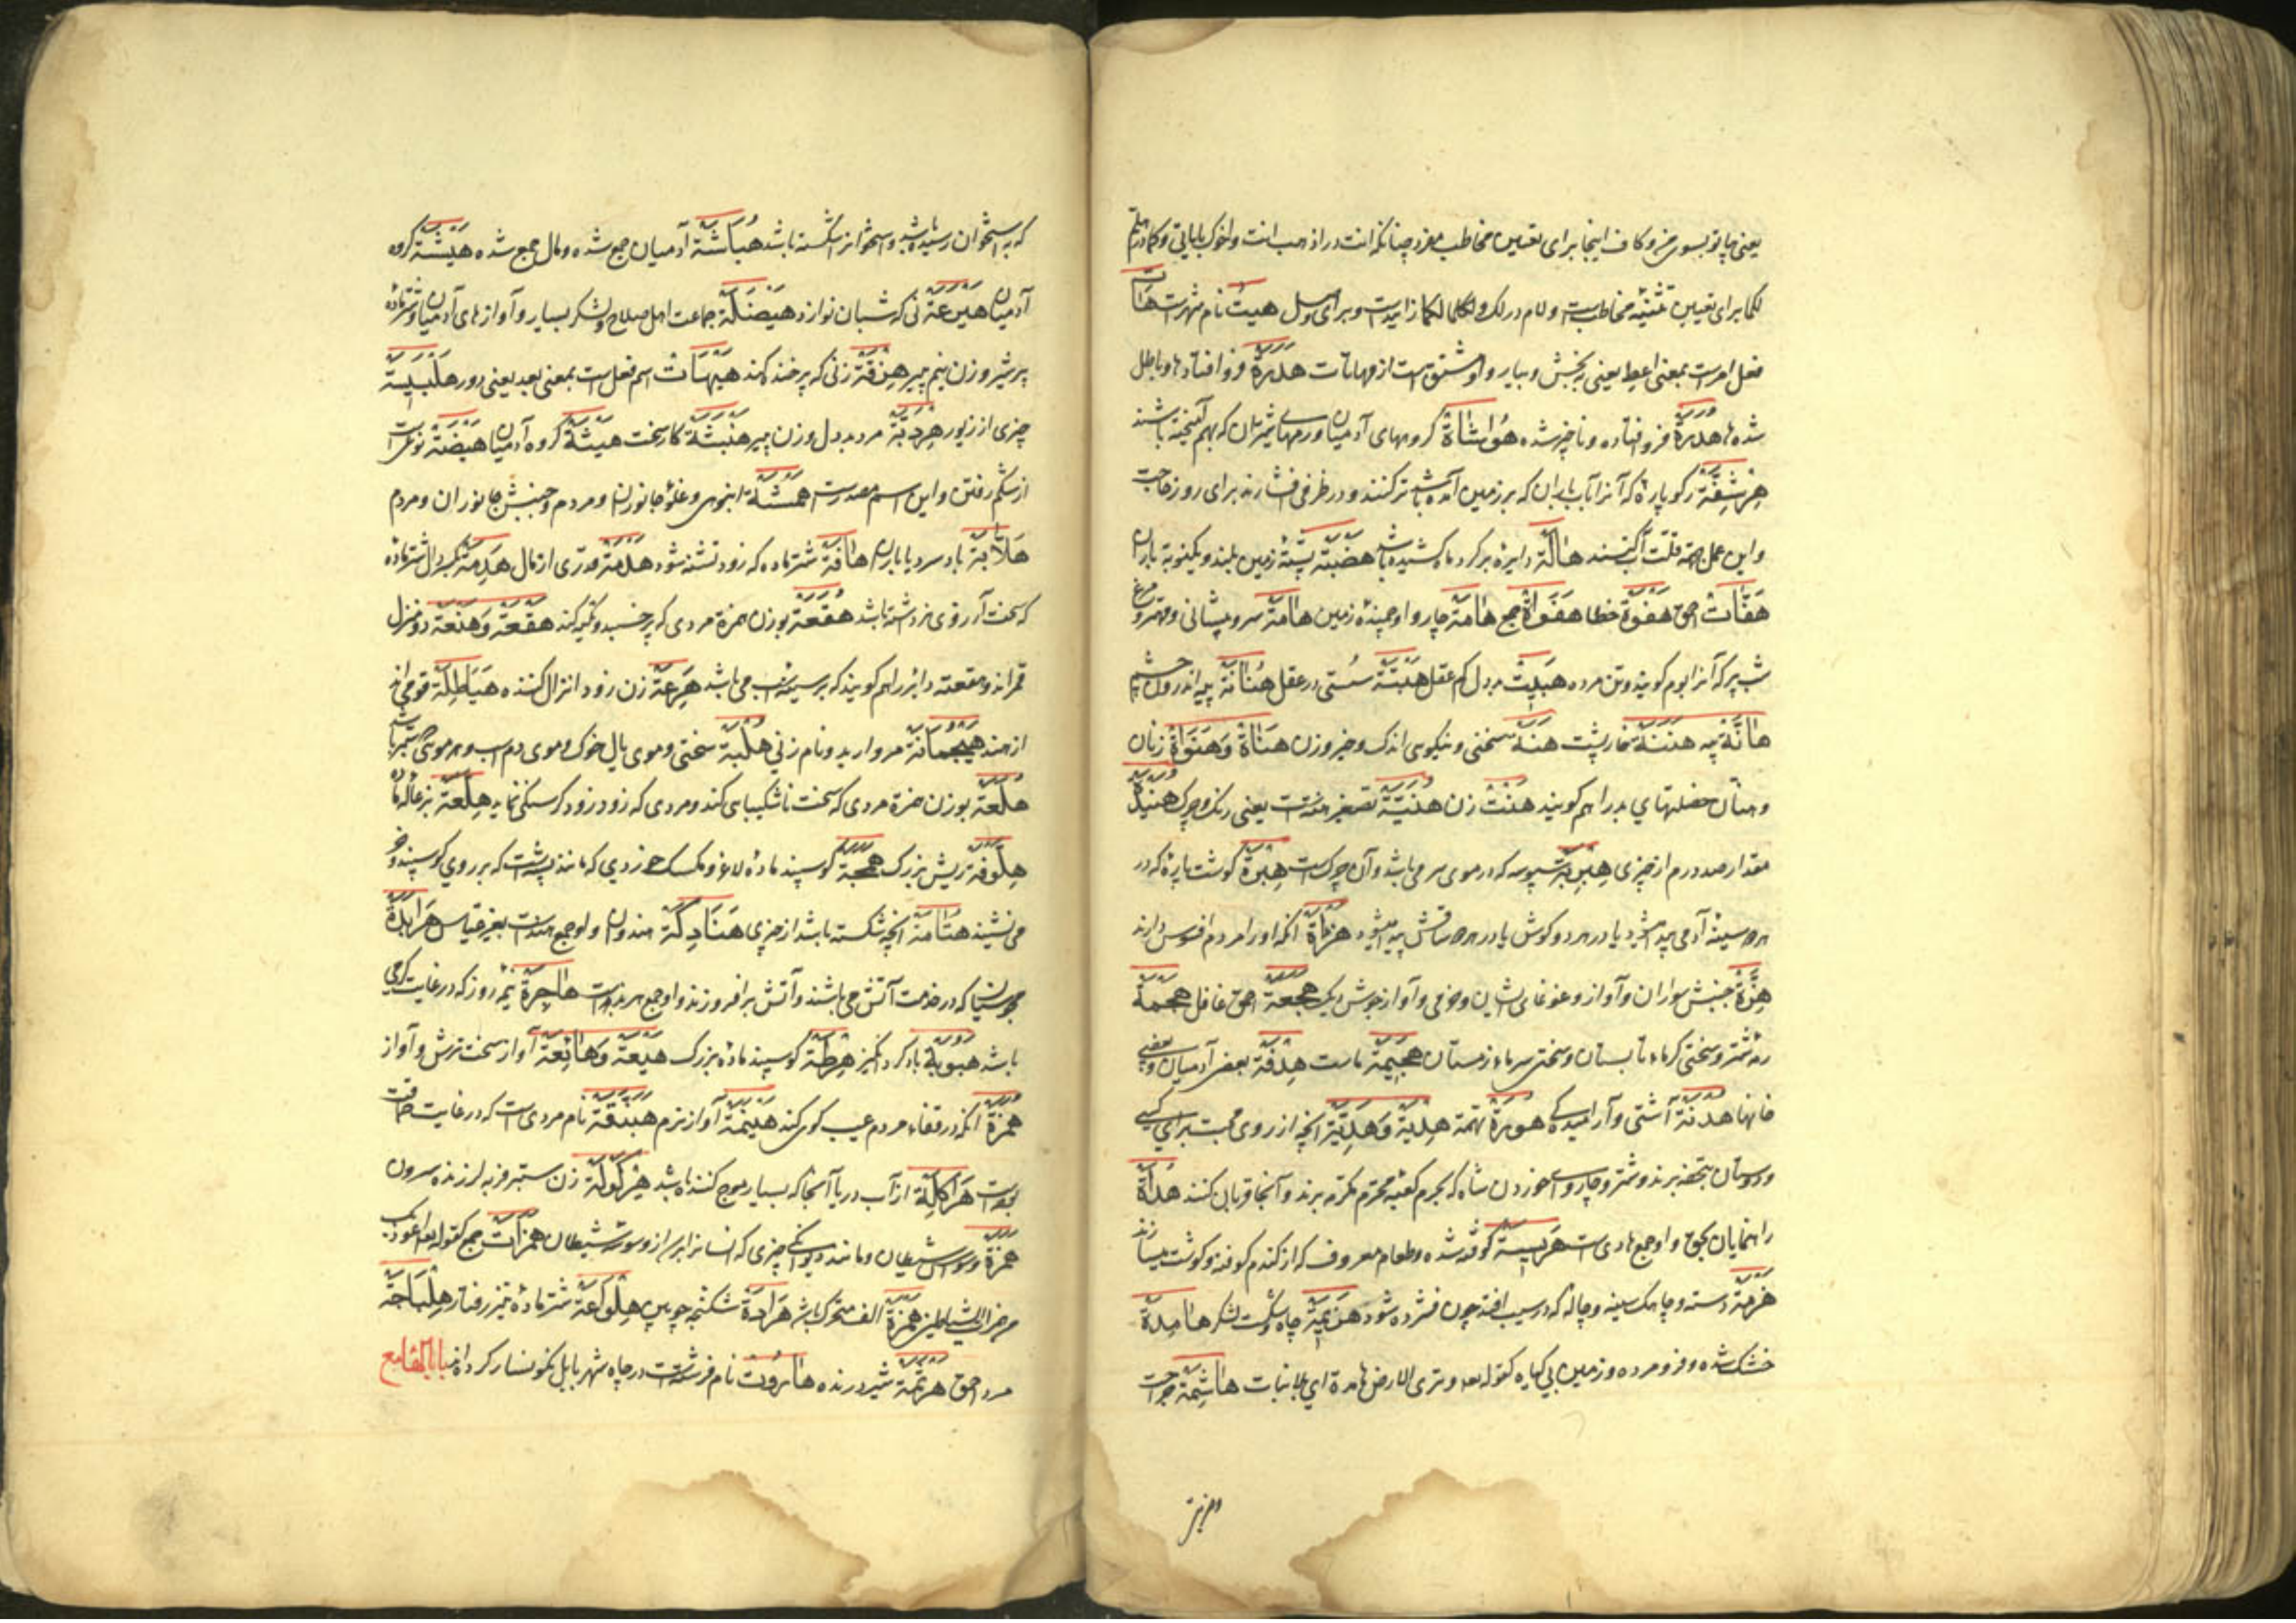 یعنی بسوی من و کاف اینجا برای تعیین مخاطب مفرد چنانکه انت در اذهب انت واخوک بایاتی وکما در
لکما برای تعیین تثنیه مخاطب است ولام در لک ولکما زاید است هیت نام شهریست هات
فعل امر است بمعنی اعط یعنی بخش و بیار و او مشتق است از مهاتات هدرة فروافتادها و باطل
شده ها هدرة فروافتاده و ناچیز شده هواشاة گروههای آدمیان ورمهای شتران که بهم آمیخته باشند
هرشفة رکو پارهٔ که آنرا بآب باران که بر زمین آمده باشد تر کنند و در ظرفی فشارند برای روز حاجت
و این عمل جهة قلت آب کنند هالة دایرهٔ بر گرد ماه کشیده باشد هضبة پشتهٔ زمین بلند و یکنوبه باران
هفات احمق هفوة خطا هفوات جمع هامة چاروا و جنبندهٔ زمین هامة سر و پیشانی و مهتر و مرغ
شب پر که آنرا بوم گویند و تن مرده هبیت بددل کم عقل هبتة سستی در عقل هنانة پیه اندرون چشم
هانة پیه هننة خارپشت هنة سختی و نیکوی اندک و چیز و زن هناة وهنوات زنان
وهنات خصلتهای بد را هم گویند هنت زن هنیة تصغیر هنت یعنی هنیدة
مقدار صد درم از چیزی هبریة سپوسه که در موی سر می باشد و آن چرک است هبرة گوشت پارهٔ که در
هر دو سینه آدمی پیدا میشود یا در هر دو گوش هزأة آنکه او را مردم افسوس دارند
هزة جنبش سواران و آواز و غوغای ایشان و خرمی و آواز جوش دیک هجعة احمق غافل هجمة
رمهٔ شتر و سختی گرماء تابستان و سختی سرماء زمستان هجیمة ماست هدفة بعضی آدمیان و بعضی
خانها هدنة آشتی و آرامیدگی هورة تهمة هدیة وهدیة آنچه از روی محبت برای کسی
و دوستان بتحفه برند و شتر و چاروای که بحرم کعبه محترم مکرم برند و آنجا قربان کنند هداة
راهنمایان بحق و او جمع هادی است هریسة کوفته شده و طعام معروف که از گندم کوفته و گوشت میسازند
هزمة دسته و چاهک سینه و چاله که در سیب افتد چون فشرده شود هزیمة چاه و شکست لشکر هامدة
خشک شده و فرومرده و زمین بی گیاه کقوله تعالی وتری الارض هامدة ای بلا نبات هاشمة جراحت
که به استخوان رسیده باشد و استخوانرا شکسته باشد هباشة آدمیان جمع شده و مال جمع شده هیشة گروه
آدمیان هیرعة نی که شبان نوازد هیضلة جماعت اهل سلاح و لشکر بسیار و آوازهای آدمیان و شتر ماده
پر شیر و زن نیم پیر هزقة زنی که پر خنده کند هیهات اسم فعل است بمعنی بعد یعنی دور هلبسیة
چیزی از زیور هردبة مرد بددل و زن پیر هنبثة کار سخت هیشة گروه آدمیان هیضة نوعی است
از شکم رفتن و این اسم مصدر است همشة انبوهی و غلوهٔ جانوران و مردم و جنبش جانوران و مردم
هلابة باد سرد با باران هافة شتر ماده که زود تشنه شود هلمة قدری از مال هدمة شتر ماده
که سخت آرزوی نر داشته باشد هقعة بوزن همزة مردی که پر خسبد و تکیه کند هقعة وهنعة دو منزل
قمراند و هقعة دایره را هم گویند که بر سینهٔ اسب می باشد هرعة زن زود انزال کننده هیاطلة قومی اند
از هند هیجمانة مروارید و نام زنی هلبة سختی و موی یال خوک و موی دم اسب و هر موی که سطبر باشد
هلعة بوزن همزة مردی که سخت ناشکیبایی کند و مردی که زود زود گرسنگی نماید هلعة بزغالهٔ ماده
هلوفة ریش بزرگ همجة گوسپند مادهٔ لاغر و مگسک خردی که مانند پشه است که بر روی گوسپند و خر
می نشیند هتامة آنچه شکسته باشد از چیزی هنادکة هندوان و او جمع هند است بغیر قیاس هرابذة
مجوسیان که در خدمت آتش می باشند و آتش برافروزند و او جمع هربذ است هاجرة نیم روز که در غایت گرمی
باشد هبوبة باد گردانگیز هرطة گوسپند مادهٔ بزرگ هیعة وهائعة آواز سخت ترش و آواز
همزة آنکه در قفاء مردم عیب گوی کند هینمة آواز نرم هبنقة نام مردی است که در غایت حماقت
بوده است هراکلة از آب دریا آنجا که بسیار موج کننده باشد هرکولة زن ستبر فربه لرزنده سرون
همزة وسوسه شیطان و مانند دیوانگی چیزی که انسانرا براید از وسوسهٔ شیطان همزات جمع کقوله تعالی اعوذ بک
من همزات الشیاطین همزة الف متحرک باشد هرادة شکنجه چوبین هلواعة شتر مادهٔ تیز رفتار هلباجة
مرد احمق هرثمة شیر درنده هاروت نام فرشته ایست در چاه شهر بابل نگونسار کرده اند باب الهاء مع